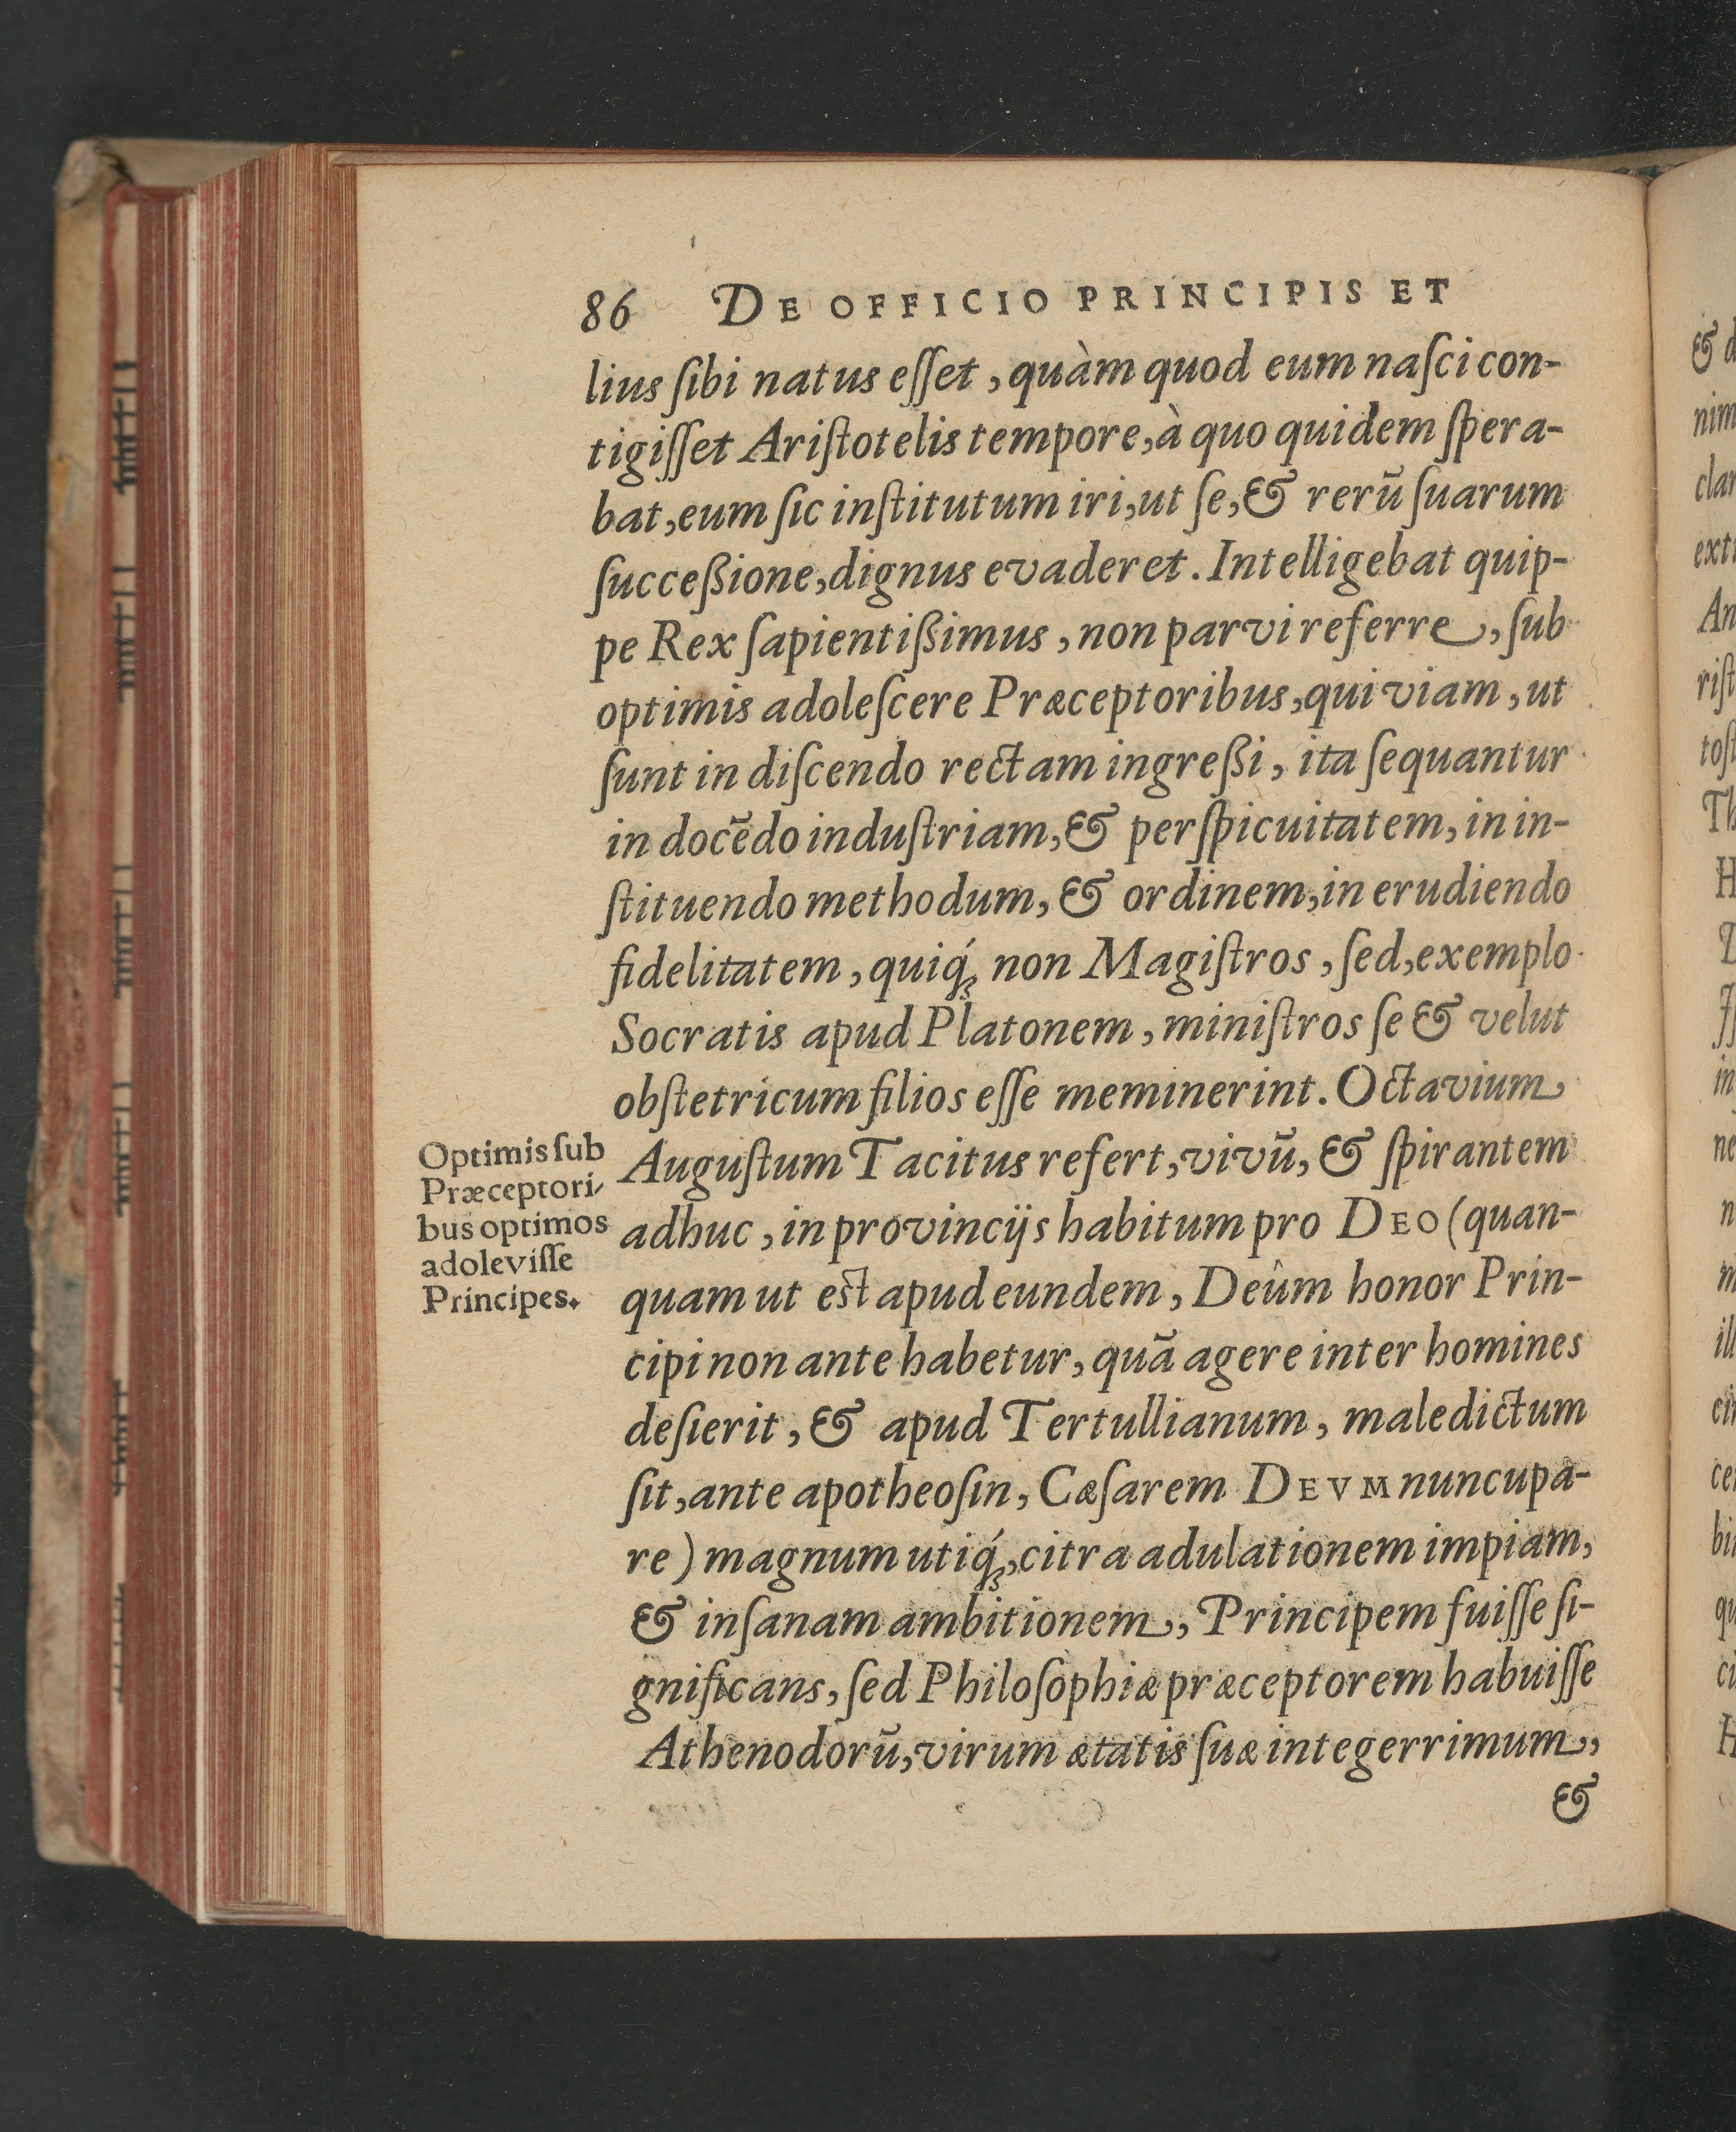 86 DE OFFICIO PRINCIPIS ET
lius ſibi natus eſſet, quàm quod eum naſci con-
tigiſſet Ariſtotelis tempore, à quo quidem ſpera-
bat, eum ſic inſtitutum iri, ut ſe, & rerū ſuarum
ſucceßione, dignus evaderet. Intelligebat quip-
pe Rex ſapientißimus, non parvi referre, ſub
optimis adoleſcere Præceptoribus, qui viam, ut
ſunt in diſcendo rectam ingreßi, ita ſequantur
in docēdo induſtriam, & perſpicuitatem, in in-
ſtituendo methodum, & ordinem, in erudiendo
fidelitatem, quiq́; non Magiſtros, ſed, exemplo
Socratis apud Platonem, miniſtros ſe & velut
obſtetricum filios eſſe meminerint. Octavium
Auguſtum Tacitus refert, vivū, & ſpirantem
adhuc, in provincijs habitum pro DEO (quan-
quam ut eſt apud eundem, Deûm honor Prin-
cipi non ante habetur, quā agere inter homines
deſierit, & apud Tertullianum, maledictum
ſit, ante apotheoſin, Cæſarem DEVM nuncupa-
re) magnum utiq́;, citra adulationem impiam,
& inſanam ambitionem, Principem fuiſſe ſi-
gnificans, ſed Philoſophiæ præceptorem habuiſſe
Athenodorū, virum ætatis ſuæ integerrimum,
&
Optimis ſub
Præceptori-
bus optimos
adoleviſſe
Principes.
& d
nim
clar
extr
An
riſt
toſt
Th
H
in
ne
n
m
ill
cin
cer
bin
qu
ci
H